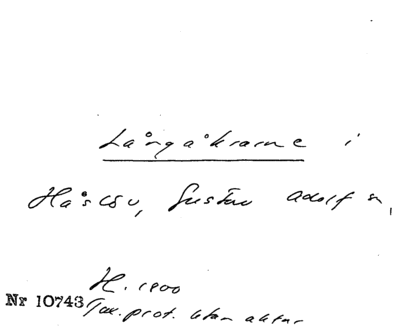 Långåkrarne i
Håslöv, Gustav Adolf sn,
H. 1900
Nr 10743
Tax. prot. utan aktnr